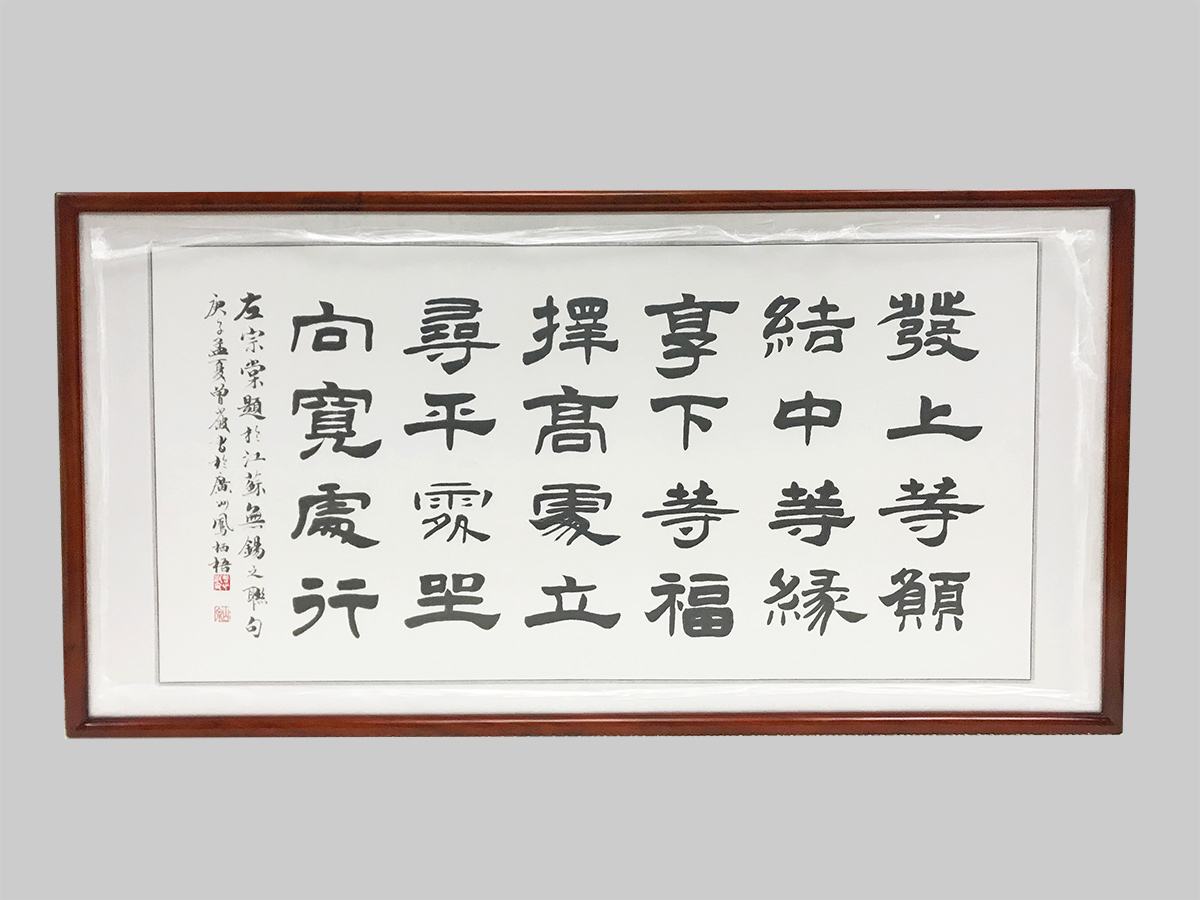 發上等願
結中等緣
享下等福
擇高處立
尋平處坐
向寬處行
左宗棠題於江蘇無錫之聯句
庚子孟夏曾書於廣州鳳栖梧